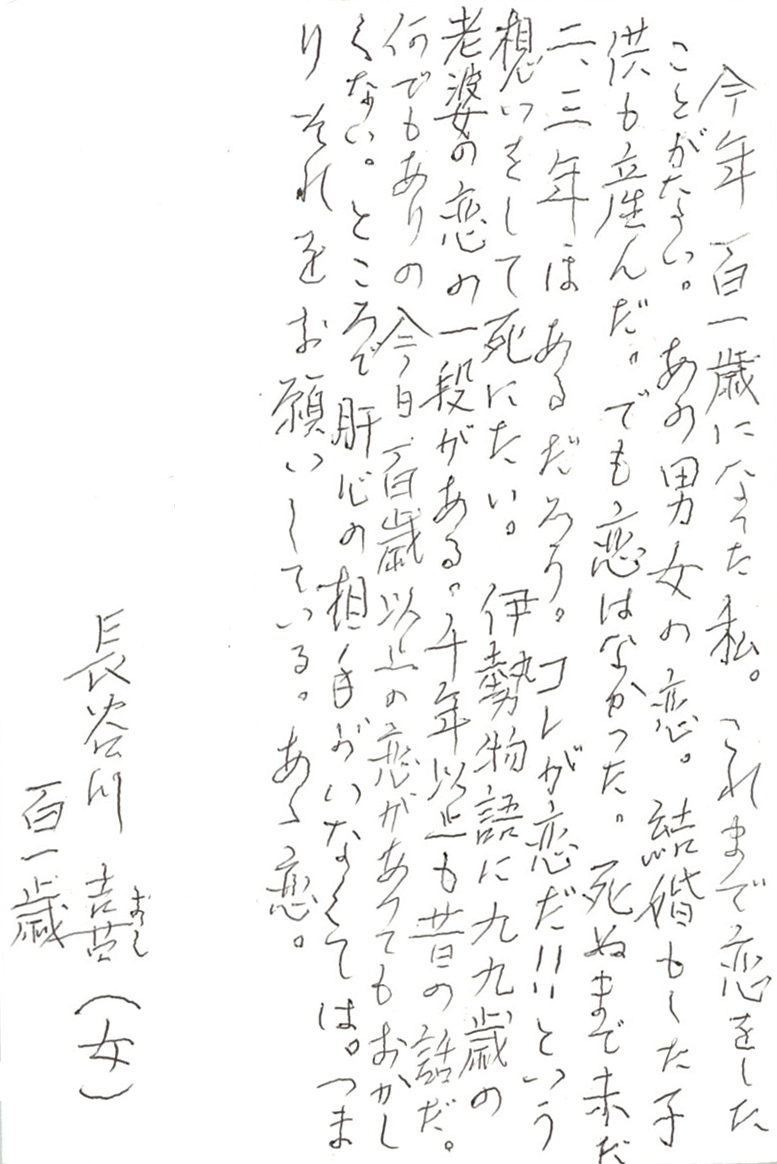 今年百一歳になった私。これまで恋をした
ことがない。あの男女の恋。結婚もした子
供も産んだ。でも恋はなかった。死ぬまで未だ
二、三年はあるだろう。コレが恋だ!!という
想いをして死にたい。伊勢物語に九九歳の
老婆の恋の一段がある。千年以上も昔の話だ。
何でもありの今日、百歳以上の恋があってもおかし
くない。ところで肝心の相手がいなくては。つま
りそれをお願いしている。あゝ恋。
長谷川 (女)
よし
百一歳